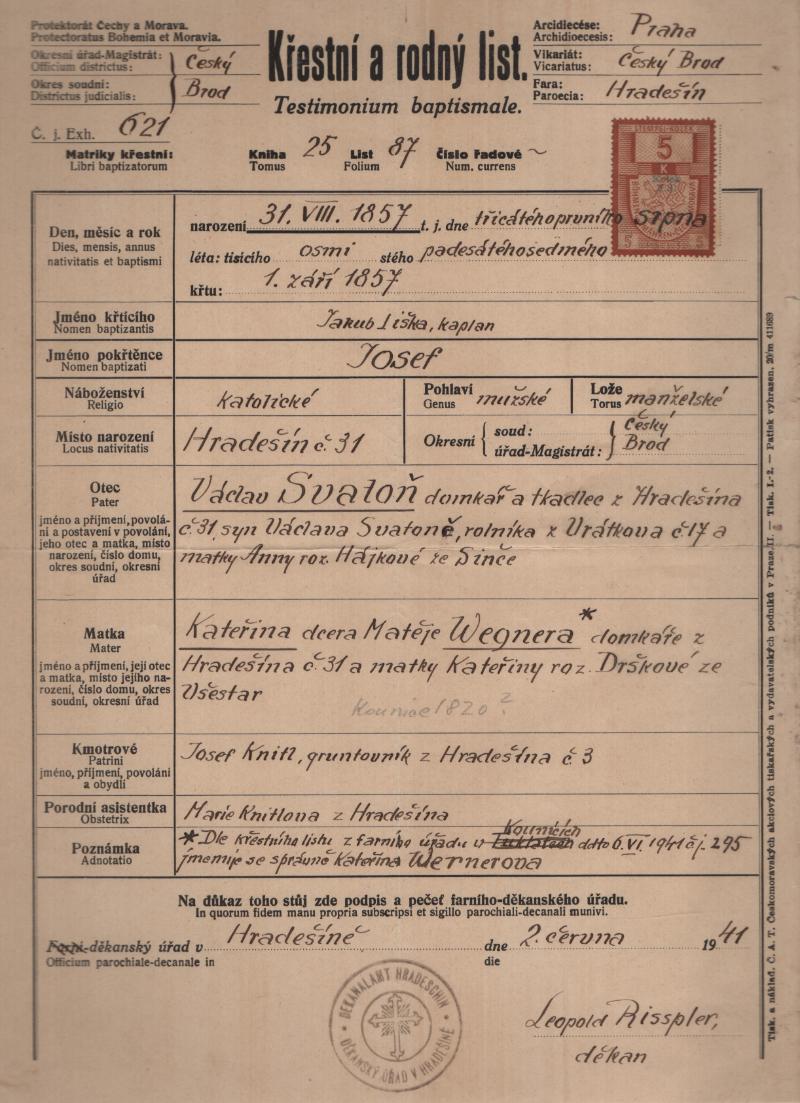 Protektorát Čechy a Morava.
Protectoratus Bohemia et Moravia.
Okresní úřad-Magistrát:
Officium districtus:
Český
Okres soudní:
Districtus judicialis:
Brod
Č. j. Exh. 621
Křestní a rodný list.
Testimonium baptismale.
Arcidiecése: Praha
Archidioecesis:
Vikariát: Český Brod
Vicariatus:
Fara: Hradešín
Paroecia:
Matriky křestní: Kniha 25 List 87 Číslo řadové ~
Libri baptizatorum Tomus Folium Num. currens
STEMPEL-KOLEK
5
K
Den, měsíc a rok
Dies, mensis, annus
nativitatis et baptismi
narození 31. VIII. 1857 t. j. dne třicátéhoprvního srpna
léta: tisícího osmi stého padesátéhosedmého
křtu: 1. září 1857
Jméno křticího
Nomen baptizantis
Jakub Liška, kaplan
Jméno pokřtěnce
Nomen baptizati
Josef
Náboženství
Religio
katolické
Pohlaví
Genus
mužské
Lože
Torus
manželské
Místo narození
Locus nativitatis
Hradešín č 31
Okresní
soud: Český
úřad-Magistrát: Brod
Otec
Pater
jméno a příjmení, povolá-
ní a postavení v povolání,
jeho otec a matka, místo
narození, číslo domu,
okres soudní, okresní
úřad
Václav Svatoň domkář a tkadlec z Hradešína
č 31 syn Václava Svatoně, rolníka z Vrátkova č 17 a
matky Anny roz. Hájkové ze Since
Matka
Mater
jméno a příjmení, její otec
a matka, místo jejího na-
rození, číslo domu, okres
soudní, okresní úřad
Kateřina dcera Matěje Wegnera* domkáře z
Hradešína č 31 a matky Kateřiny roz. Drškové ze
Všestar
Kounice 1820 ?
Kmotrové
Patrini
jméno, příjmení, povolání
a obydlí
Josef Knitl, gruntovník z Hradešína č 3
Porodní asistentka
Obstetrix
Marie Knitlova z Hradešína
Poznámka
Adnotatio
Kounicích
* Dle křestního listu z farního úřadu v ddto 6. VI. 1941 čj. 295
jmenuje se správně Kateřina Wernerova
Na důkaz toho stůj zde podpis a pečeť farního-děkanského úřadu.
In quorum fidem manu propria subscripsi et sigillo parochiali-decanali munivi.
Farní-děkanský úřad v Hradešíně dne 2. června 1941
Officium parochiale-decanale in die
DEKANALAMT HRADESCHIN
DĚKANSKÝ ÚŘAD V HRADEŠÍNĚ
Leopold Risspler,
děkan
Tisk. a náklad. Č. A. T. Českomoravských akciových tiskařských a vydavatelských podniků v Praze II. — Tisk. I.-2. — Patisk vyhrazen. 20/m 411689